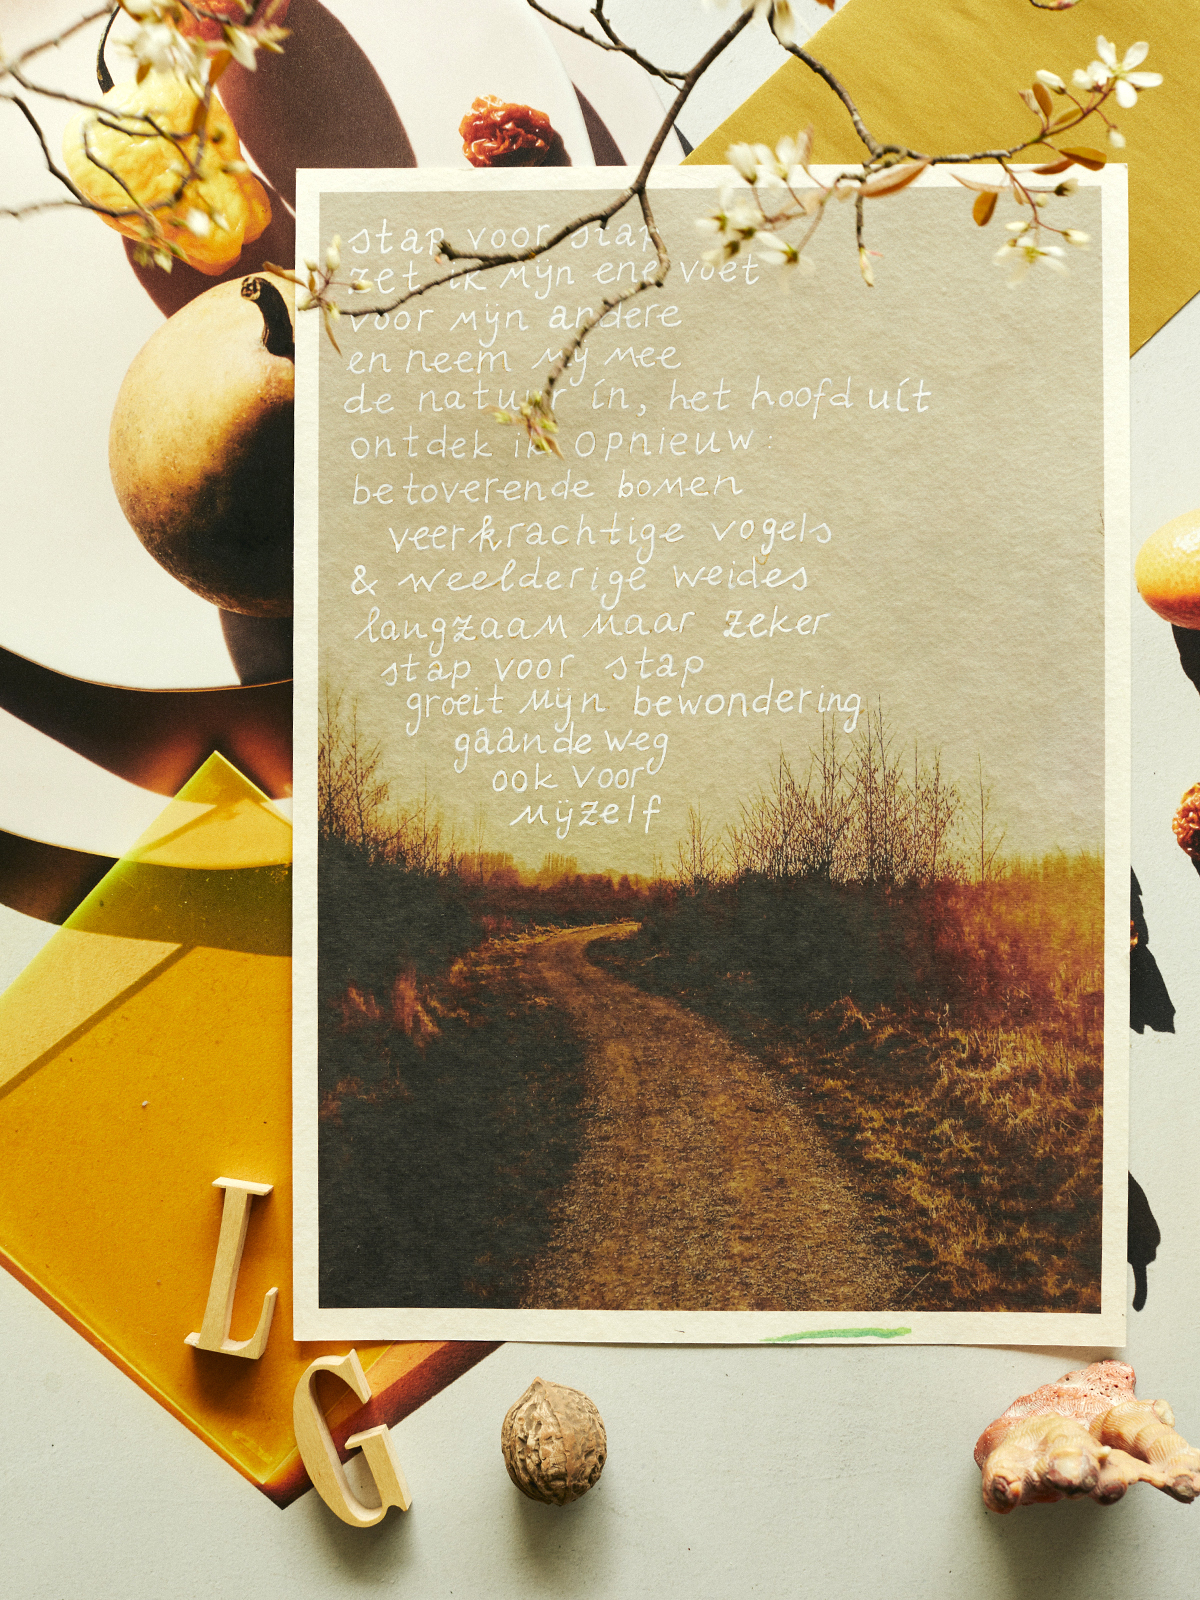 stap voor stap
zet ik mijn ene voet
voor mijn andere
en neem mij mee
de natuur in, het hoofd uit
ontdek ik opnieuw:
betoverende bomen
veerkrachtige vogels
& weelderige weides
langzaam maar zeker
stap voor stap
groeit mijn bewondering
gaandeweg
ook voor
mijzelf
L
G